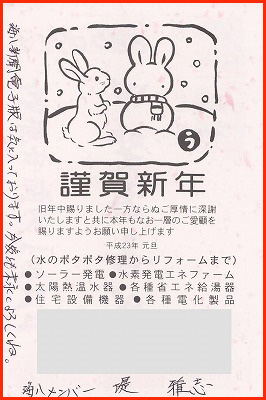 う
謹賀新年
旧年中賜りました一方ならぬご厚情に深謝
いたしますと共に本年もなお一層のご愛顧を
賜りますようお願い申し上げます
平成23年 元旦
(水のポタポタ修理からリフォームまで)
●ソーラー発電 ●水素発電エネファーム
●太陽熱温水器 ●各種省エネ給湯器
●住宅設備機器 ●各種電化製品
新聞電子版は気に入っております。
メンバー 堤 雅志